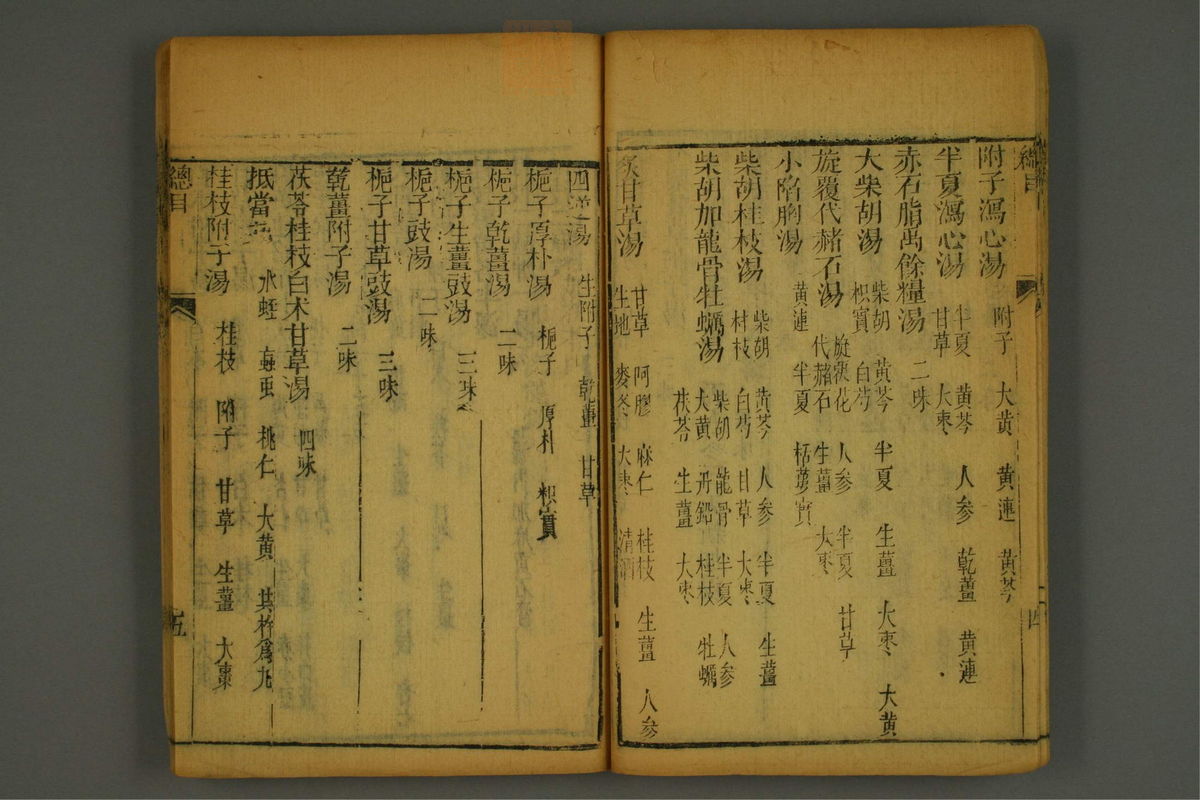 總目
四
附子瀉心湯 附子 大黃 黃連 黃芩
半夏瀉心湯 半夏 黃芩 人參 乾薑 黃連
甘草 大棗
赤石脂禹餘糧湯 二味
大柴胡湯 柴胡 黃芩 半夏 生薑 大棗 大黃
枳實 白芍
旋覆代赭石湯 旋覆花 人參 半夏 甘草
代赭石 生薑 大棗
小陷胸湯 黃連 半夏 栝蔞實
柴胡桂枝湯 柴胡 黃芩 人參 半夏 生薑
桂枝 白芍 甘草 大棗
柴胡加龍骨牡蠣湯 柴胡 龍骨 半夏 人參
大黃 丹鉛 桂枝 牡蠣
茯苓 生薑 大棗
炙甘草湯 甘草 阿膠 麻仁 桂枝 生薑 人參
生地 麥冬 大棗 清酒
四逆湯 生附子 乾薑 甘草
梔子厚朴湯 梔子 厚朴 枳實
梔子乾薑湯 二味
梔子生薑豉湯 三味
梔子豉湯 二味
梔子甘草豉湯 三味
乾薑附子湯 二味
茯苓桂枝白术甘草湯 四味
抵當 水蛭 蝱虫 桃仁 大黃 其杵為丸
桂枝附子湯 桂枝 附子 甘草 生薑 大棗
總目
五